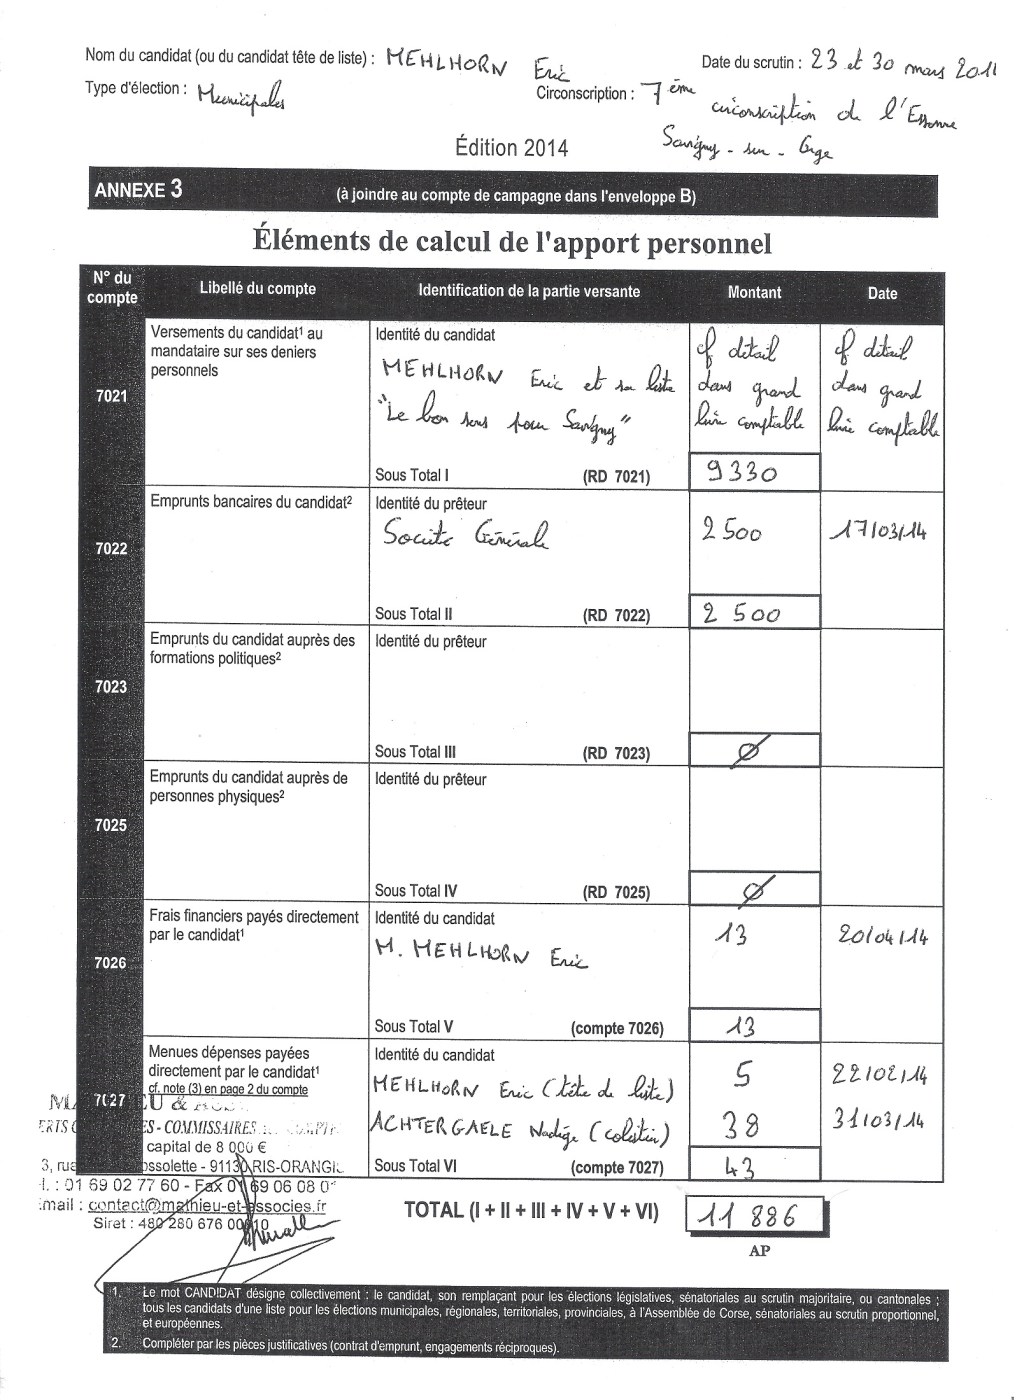 Nom du candidat (ou du candidat tête de liste) : MEHLHORN Eric
Date du scrutin : 23 et 30 mars 2014
Type d'élection : Municipales
Circonscription : 7ème circonscription de l'Essonne
Savigny - sur - Orge
Édition 2014
ANNEXE 3 (à joindre au compte de campagne dans l'enveloppe B)
Éléments de calcul de l'apport personnel
N° du compte Libellé du compte Identification de la partie versante Montant Date
7021
Versements du candidat¹ au
mandataire sur ses deniers
personnels
Identité du candidat
MEHLHORN Eric et sa liste
"Le bon sens pour Savigny"
cf détail
dans grand
livre comptable
cf détail
dans grand
livre comptable
Sous Total I (RD 7021) 9330
7022
Emprunts bancaires du candidat²
Identité du prêteur
Société Générale 2 500 17/03/14
Sous Total II (RD 7022) 2 500
7023
Emprunts du candidat auprès des
formations politiques²
Identité du prêteur
Sous Total III (RD 7023) Ø
7025
Emprunts du candidat auprès de
personnes physiques²
Identité du prêteur
Sous Total IV (RD 7025) Ø
7026
Frais financiers payés directement
par le candidat¹
Identité du candidat
M. MEHLHORN Eric 13 20/04/14
Sous Total V (compte 7026) 13
7027
Menues dépenses payées
directement par le candidat¹
cf. note (3) en page 2 du compte
Identité du candidat
MEHLHORN Eric (tête de liste) 5 22/02/14
ACHTERGAELE Nadège (colistier) 38 31/03/14
Sous Total VI (compte 7027) 43
ES - COMMISSAIRES
capital de 8 000 €
3, rue ossolette - 9113 RIS-ORANGI
l. : 01 69 02 77 60 - Fax 01 69 06 08 0
mail : contact@mathieu-et-associes.fr
Siret : 480 280 676 00010
TOTAL (I + II + III + IV + V + VI) 11 886
AP
1. Le mot CANDIDAT désigne collectivement : le candidat, son remplaçant pour les élections législatives, sénatoriales au scrutin majoritaire, ou cantonales ;
tous les candidats d'une liste pour les élections municipales, régionales, territoriales, provinciales, à l'Assemblée de Corse, sénatoriales au scrutin proportionnel,
et européennes.
2. Compléter par les pièces justificatives (contrat d'emprunt, engagements réciproques).